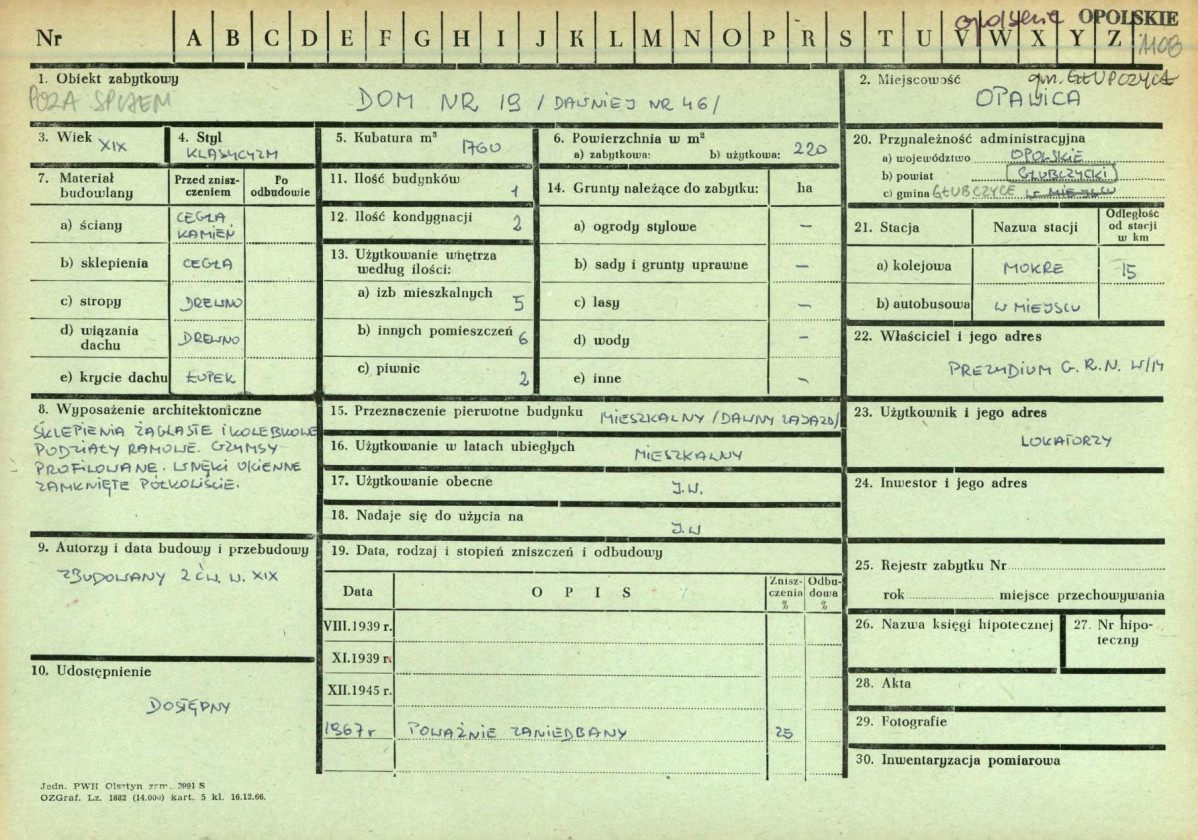 opolskie OPOLSKIE
Nr A B C D E F G H I J K L M N O P R S T U V W X Y Z 1108
1. Obiekt zabytkowy
POZA SPISEM
DOM NR 19 /DAWNIEJ NR 46/
2. Miejscowość gm. GŁUBCZYCE
OPAWICA
3. Wiek XIX
4. Styl
KLASYCYZM
5. Kubatura m³ 1760
6. Powierzchnia w m²
a) zabytkowa: b) użytkowa: 220
7. Materiał budowlany
Przed zniszczeniem
Po odbudowie
a) ściany CEGŁA
KAMIEŃ
b) sklepienia CEGŁA
c) stropy DREWNO
d) wiązania dachu DREWNO
e) krycie dachu ŁUPEK
11. Ilość budynków 1
12. Ilość kondygnacji 2
13. Użytkowanie wnętrza
według ilości:
a) izb mieszkalnych 5
b) innych pomieszczeń 6
c) piwnic 2
14. Grunty należące do zabytku: ha
a) ogrody stylowe –
b) sady i grunty uprawne –
c) lasy –
d) wody –
e) inne –
20. Przynależność administracyjna
a) województwo OPOLSKIE
b) powiat GŁUBCZYCKI
c) gmina GŁUBCZYCE W MIEJSCU
21. Stacja Nazwa stacji Odległość od stacji w km
a) kolejowa MOKRE 15
b) autobusowa W MIEJSCU
22. Właściciel i jego adres
PREZYDIUM G.R.N. W/M
8. Wyposażenie architektoniczne
SKLEPIENIA ŻAGLASTE I KOLEBKOWE
PODZIAŁY RAMOWE. GZYMSY
PROFILOWANE. WNĘKI OKIENNE
ZAMKNIĘTE PÓŁKOLIŚCIE.
15. Przeznaczenie pierwotne budynku MIESZKALNY /DAWNY ZAJAZD/
16. Użytkowanie w latach ubiegłych MIESZKALNY
17. Użytkowanie obecne J.W.
18. Nadaje się do użycia na J.W
23. Użytkownik i jego adres
LOKATORZY
24. Inwestor i jego adres
9. Autorzy i data budowy i przebudowy
ZBUDOWANY 2 ĆW. W. XIX
19. Data, rodzaj i stopień zniszczeń i odbudowy
Data OPIS Zniszczenia % Odbudowa %
VIII.1939 r.
XI.1939 r.
XII.1945 r.
1967 r POWAŻNIE ZANIEDBANY 25
25. Rejestr zabytku Nr
rok miejsce przechowywania
26. Nazwa księgi hipotecznej
27. Nr hipoteczny
10. Udostępnienie
DOSTĘPNY
28. Akta
29. Fotografie
30. Inwentaryzacja pomiarowa
Jedn. PWH Olsztyn zam. 2991 S
OZGraf. Lz. 1882 (14.000) kart. 5 kl. 16.12.66.